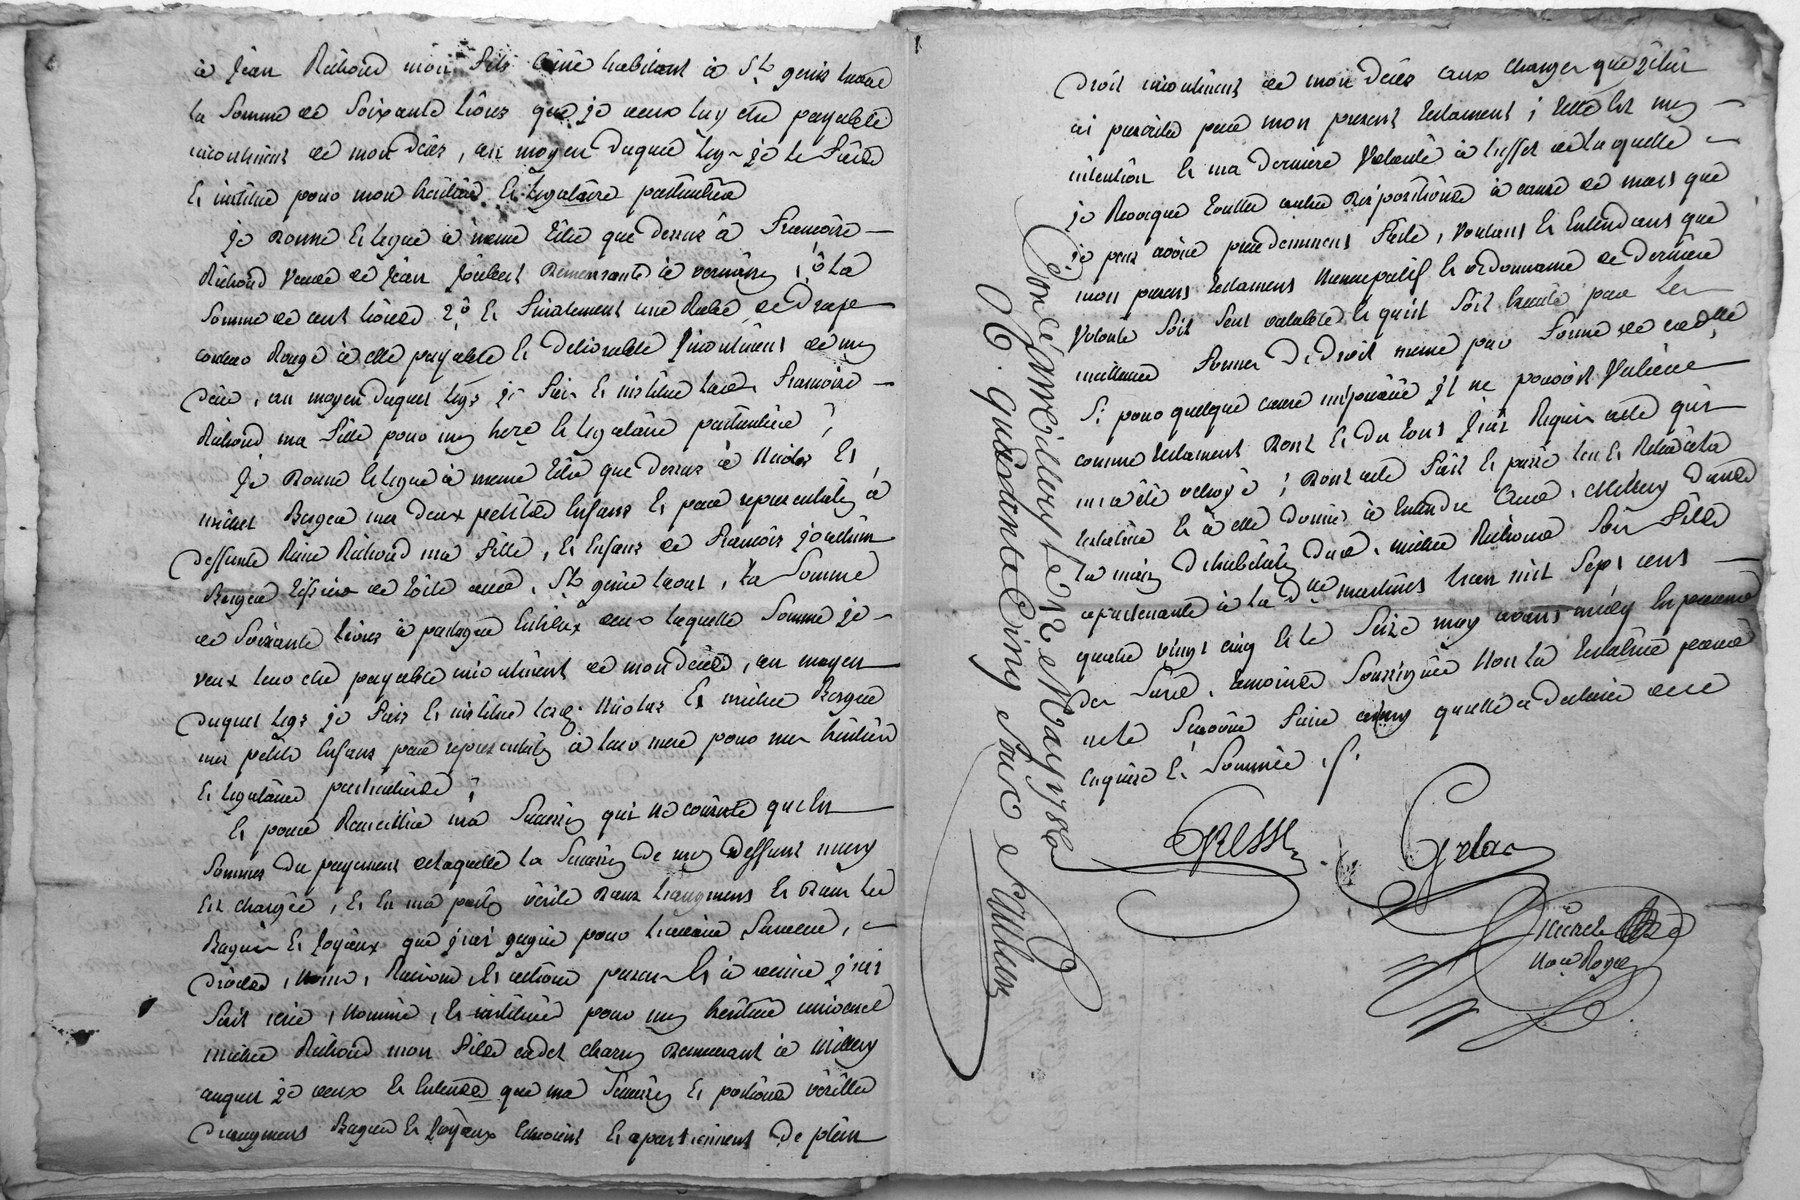 à Jean Richoud mon fils ainé habitant à St genis laval
la Somme de Soixante livres que je veux luy etre payable
incontinent de mon deces, au moyen duquel legs je le fais
et institue pour mon heritier et legataire particulier
Je donne et legue à meme titre que dessus à Francoise
Richoud veuve de Jean Joubert demeurante à vernaison, 1º La
Somme de cent livres 2º et finalement une Robe de drap
couleur Rouge à elle payable et delivrable Jncontinent de mon
deces, au moyen duquel legs je fais et institue lad. francoise
Richoud ma fille pour mon here et legataire particuliere ;
Je donne et legue à meme titre que dessus à Nicolas et
michel Berger mes deux petits Enfans et par representation à
deffunte Reine Richoud ma fille, et Enfans de francois joachim
Berger de toile St genis laval, La Somme
de Soixante livres à partager Entr'eux deux laquelle Somme je
veux leur etre payable incontinent de mon deces, au moyen
duquel legs je fais et institue lesd. Nicolas et michel Berger
mes petits Enfans par representation à leur mere pour mes heritiers
et legataires particuliers ;
Et pour Recueillir ma Succession qui ne consiste qu'en
Sommes du payement de laquelle la Succession de mon deffunt mary
est chargée, et en ma portion virile dans l'augment et dans les
Bagues et Joyaux que j'ai gagné pour l'avoir Survecu,
droits, noms, Raisons et actions presens et à venir j'ai
fait, créé, nommé, et institué pour mon heritier universel
michel Richoud mon fils cadet demeurant à millery
auquel je veux et Entends que ma Succession et portions viriles
d'augment Bagues et Joyaux et apartiennent de plein
droit incontinent de mon deces aux charges que j'ai
ci prescrites par mon present testament ; telle est mon
intention et ma derniere Volonté à l'effet de laquelle
je Revoque toutes autres dispositions à cause de mort que
je peux avoir precedemment faites, Voulant et Entendant que
mon present testament Nuncupatif et ordonnance de derniere
Volonté Soit Seul valable et qu'il Soit Executé par les
meilleures formes de droit meme par forme de codille
Si pour quelque cause imprevüe Jl ne pouvoit Valoir
comme testament dont et du tout J'ai Requis acte qui
m'a été octroyé ; dont acte fait et passé lu et Relu à la
testatrice et à elle donné à Entendre aud. millery dans
la maison d'habitation dud. michel Richoud Son fils
apartenante à la dlle martinet l'an mil Sept cent
quatre vingt cinq et le Seize may avant midy En presence
des Surs. temoins Soussignés Non la testatrice pour
ne le Scavoir faire ainsy qu'elle a declaré de ce
Enquise et Sommée .
Gresse
Not. Royal
Concé à millery Le 12e May 178
06. quarante Cinq Sous